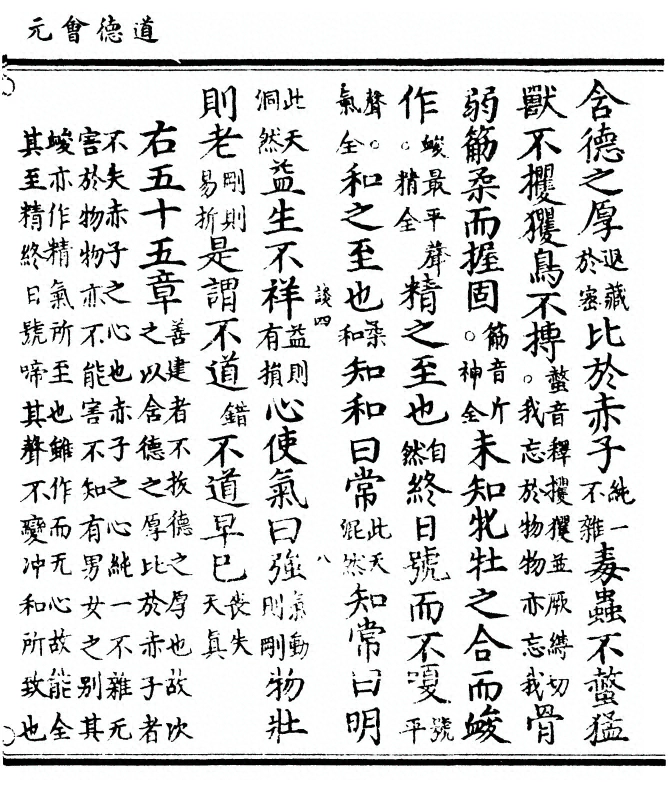 道德會元
含德之厚退藏於密比於赤子純一不雜毒蟲不螫猛
獸不攫玃鳥不搏螫音釋攫玃並厥縛切。我忘於物物亦忘我骨
弱筋柔而握固筋音斤。神全未知牝牡之合而峻
作峻最平聲。精全精之至也自然終日號而不嗄號平
聲。氣全和之至也柔和知和曰常此天混然知常曰明
談四 八
此天洞然益生不祥益則有損心使氣曰強氣動則剛物壯
則老剛則易折是謂不道錯不道早已喪失天真
右五十五章善建者不拔德之厚也故次之以含德之厚比於赤子者
不失赤子之心也赤子之心純一不雜无
害於物物亦不能害不知有男女之别其
峻亦作精氣所至也雖作而无心故能全
其至精終日號啼其聲不變冲和所致也